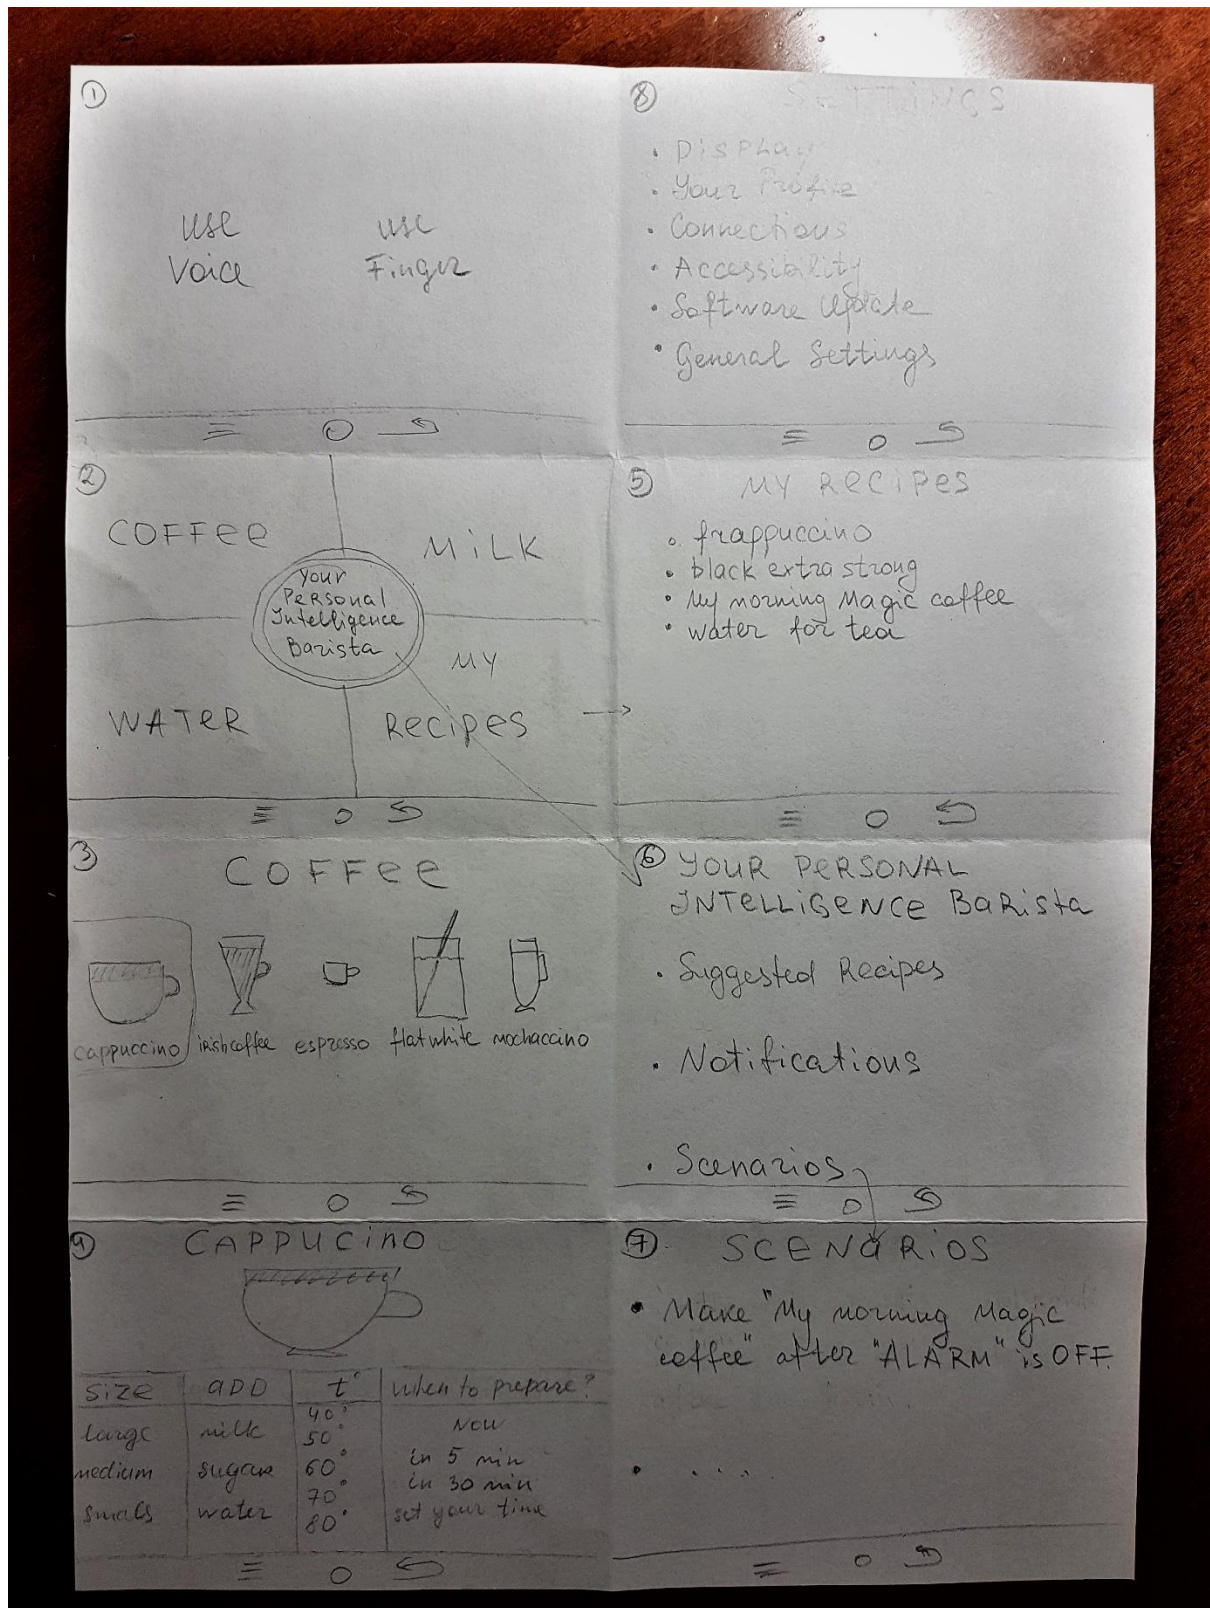 1
use use
Voice Finger
2
COFFee MiLK
Your
Personal
Intelligence
Barista
MY
WATeR RecipeS
3
COFFee
cappuccino irish coffee espresso flat white mochaccino
4
CAPPUCiNO
Size ADD t° When to prepare?
large milk 40° Now
50°
medium sugar 60° in 5 min
70° in 30 min
small water 80° set your time
8
SeTTiNGS
• Display
• Your Profile
• Connections
• Accessibility
• Software Update
• General Settings
5
MY ReCiPeS
• frappuccino
• black extra strong
• My morning Magic coffee
• water for tea
6 YOUR PeRSONAL
INTeLLiGENCe BaRista
• Suggested Recipes
• Notifications
• Scenarios
7 SCENARiOS
• Make "My morning Magic
coffee" after "ALARM" is OFF.
• ....